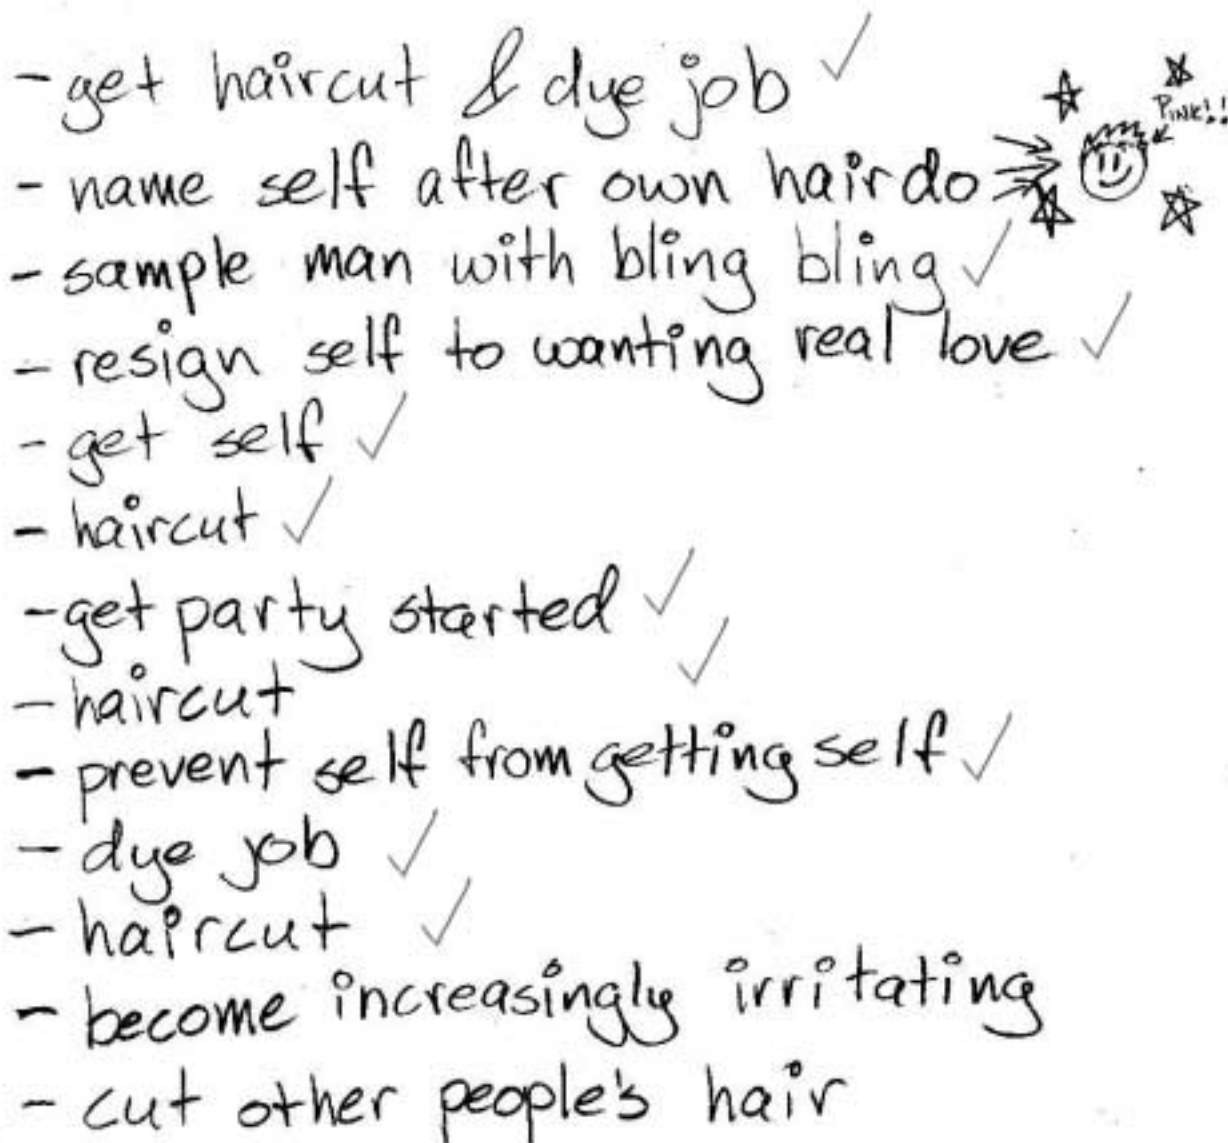 - get haircut & dye job ✓
PINK!!
- name self after own hairdo
- sample man with bling bling ✓
- resign self to wanting real love ✓
- get self ✓
- haircut ✓
- get party started ✓
- haircut ✓
- prevent self from getting self ✓
- dye job ✓
- haircut ✓
- become increasingly irritating
- cut other people's hair